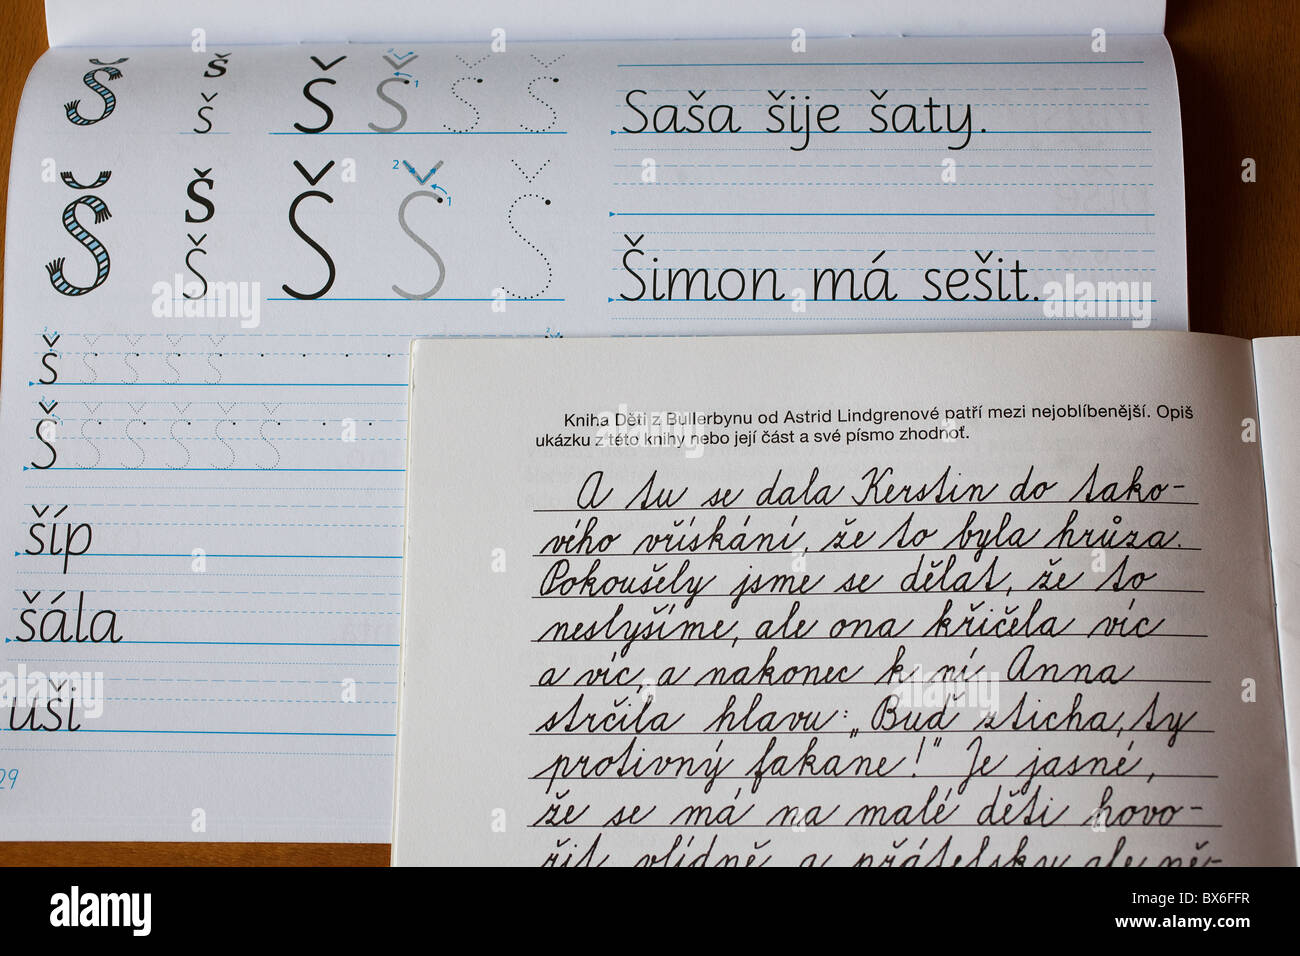 Š š Š Š Š Š
š
Š Š Š Š Š
Š
š š š š š
š š š š š
šíp
šála
uši
29
Saša šije šaty.
Šimon má sešit.
Kniha Děti z Bullerbynu od Astrid Lindgrenové patří mezi nejoblíbenější. Opiš
ukázku z této knihy nebo její část a své písmo zhodnoť.
A tu se dala Kerstin do tako-
vého vřískání, že to byla hrůza.
Pokoušely jsme se dělat, že to
neslyšíme, ale ona křičela víc
a víc, a nakonec k ní Anna
strčila hlavu: „Buď zticha, ty
protivný fakane!“ Je jasné,
že se má na malé děti hovo-
řit vlídně a přátelsky, ale ně-
alamy
Image ID: BX6FFR
www.alamy.com